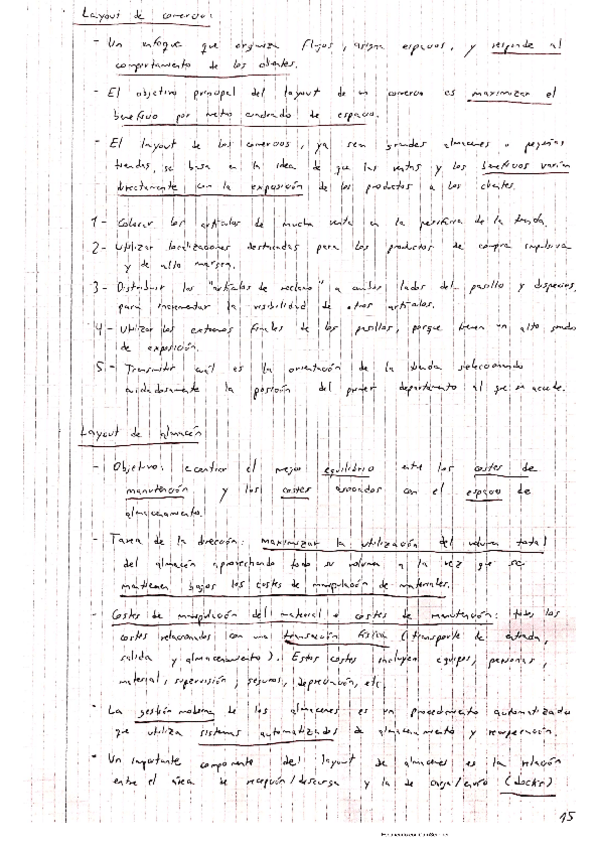 Layout de comercio:
- Un enfoque que organiza flujos, asigna espacios, y responde al
comportamiento de los clientes.
- El objetivo principal del layout de un comercio es maximizar el
beneficio por metro cuadrado de espacio.
- El layout de los comercios, ya sean grandes almacenes o pequeñas
tiendas, se basa en la idea de que las ventas y los beneficios varían
directamente con la exposición de los productos a los clientes.
1- Colocar los artículos de mucha venta en la periferia de la tienda.
2- Utilizar localizaciones destacadas para los productos de compra impulsiva
y de alto margen.
3- Distribuir los "artículos de reclamo" a ambos lados del pasillo y dispersos,
para incrementar la visibilidad de otros artículos.
4- Utilizar los extremos finales de los pasillos, porque tienen un alto grado
de exposición.
5- Transmitir cuál es la orientación de la tienda seleccionando
cuidadosamente la posición del primer departamento al que se accede.
Layout de almacén
- Objetivo: encontrar el mejor equilibrio entre los costes de
manutención y los costes asociados con el espacio de
almacenamiento.
- Tarea de la dirección: maximizar la utilización del volumen total
del almacén aprovechando todo su volumen a la vez que se
mantienen bajos los costes de manipulación de materiales.
- Costes de manipulación del material o costes de manutención: todos los
costes relacionados con una transacción física (transporte de entrada,
salida y almacenamiento). Estos costes incluyen equipos, personas,
material, supervisión, seguros, depreciación, etc.
- La gestión moderna de los almacenes es un procedimiento automatizado
que utiliza sistemas automatizados de almacenamiento y recuperación.
- Un importante componente del layout de almacenes es la relación
entre el área de recepción/descarga y la de carga/envío (docks)
15